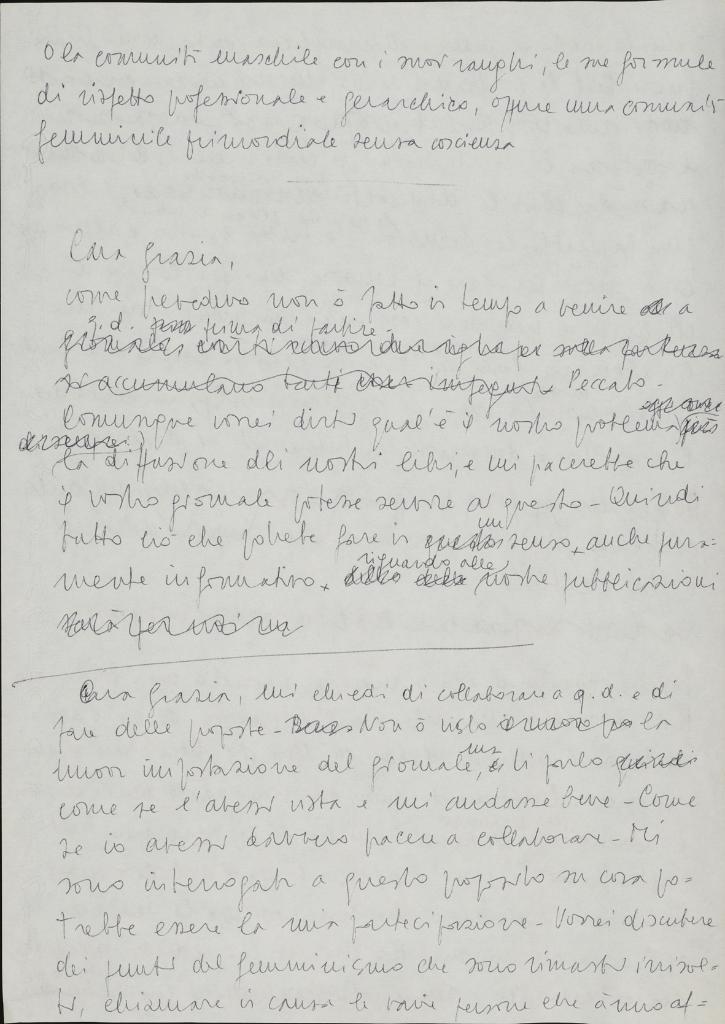 O la comunità maschile con i suoi ranghi, le sue formule
di rispetto professionale e gerarchico, oppure una comunità
femminile primordiale senza coscienza
Cara Grazia,
come prevedevo non ò fatto in tempo a venire a
q.d. prima di partire.
si accumulano tanti Peccato.
Comunque vorrei dirti qual'è il nostro problema
la diffusione dei nostri libri, e mi piacerebbe che
il vostro giornale potesse servire a questo – Quindi
tutto ciò che potete fare in un senso, anche pura=
mente informativo, riguardo alle nostre pubblicazioni
Cara Grazia, mi chiedi di collaborare a q.d. e di
fare delle proposte – Non ò visto la
nuova impostazione del giornale, ma ti parlo
come se l'avessi vista e mi andasse bene – Come
se io avessi davvero piacere a collaborare – Mi
sono interrogata a questo proposito su cosa po=
trebbe essere la mia partecipazione – Vorrei discutere
dei punti del femminismo che sono rimasti irrisol=
ti, chiamare in causa le varie persone che ànno af=